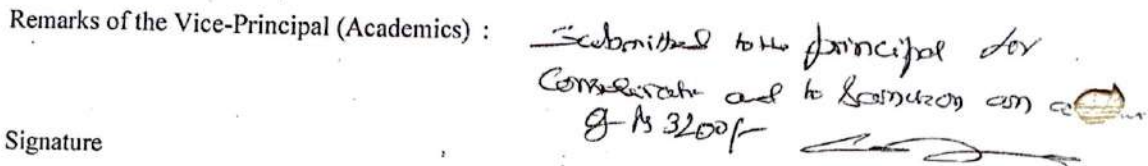 Remarks of the Vice-Principal (Academics) : Submitted to the principal for
Consideratn and to Sanction an
of Rs 3200/-
Signature